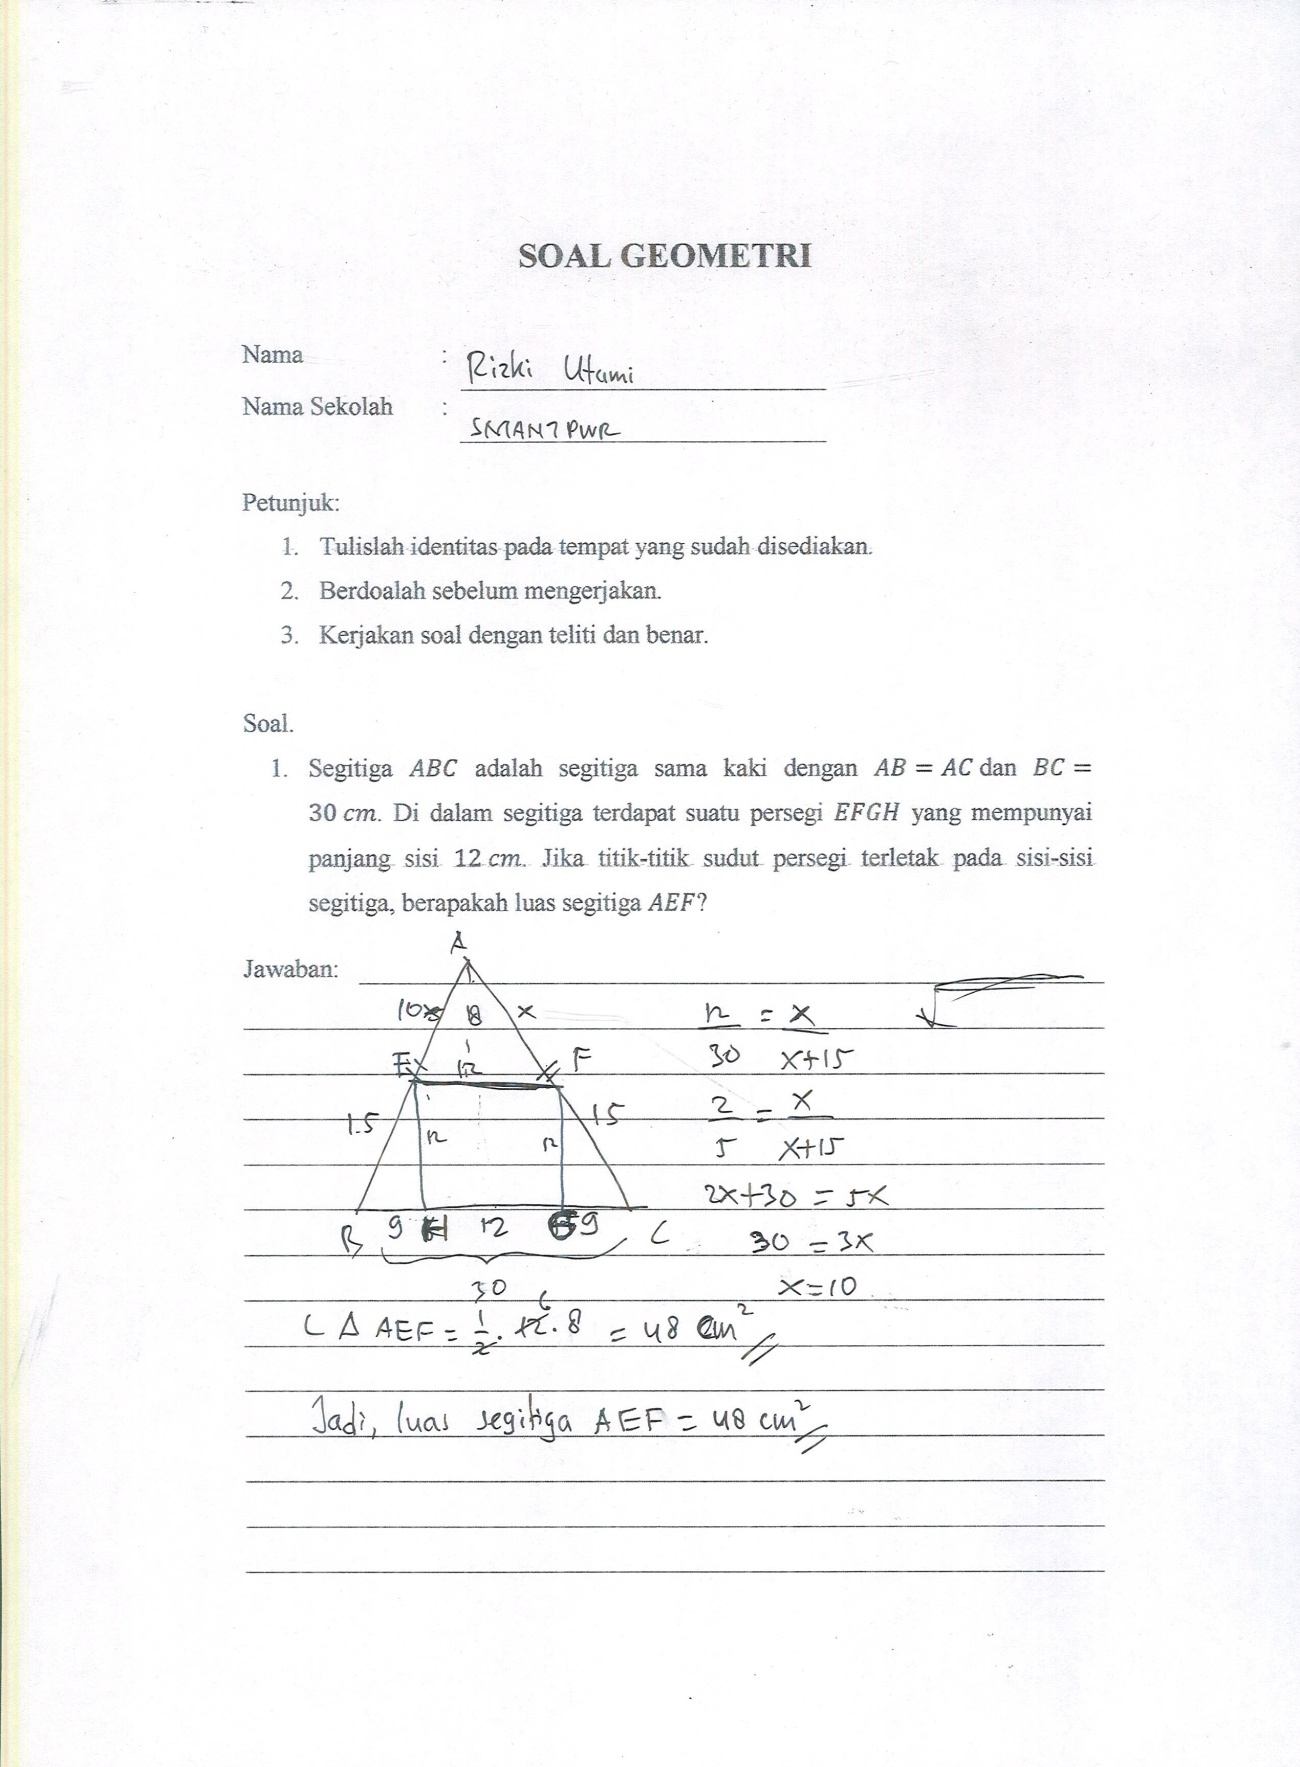 SOAL GEOMETRI
Nama : Rizki Utami
Nama Sekolah : SMAN 7 PWR
Petunjuk:
1. Tulislah identitas pada tempat yang sudah disediakan.
2. Berdoalah sebelum mengerjakan.
3. Kerjakan soal dengan teliti dan benar.
Soal.
1. Segitiga ABC adalah segitiga sama kaki dengan AB = AC dan BC =
30 cm. Di dalam segitiga terdapat suatu persegi EFGH yang mempunyai
panjang sisi 12 cm. Jika titik-titik sudut persegi terletak pada sisi-sisi
segitiga, berapakah luas segitiga AEF?
Jawaban:
A
10 8 x
E 12 F
15 12 12 15
B 9 H 12 G 9 C
30
12/30 = x/x+15
2/5 = x/x+15
2x+30 = 5x
30 = 3x
x = 10
L Δ AEF = 1/2 . 12 6 . 8 = 48 cm²
Jadi, luas segitiga AEF = 48 cm²